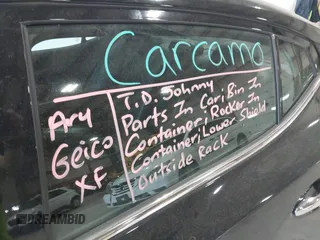 Carcamo
Ary
Geico
XF
T.D. Johnny
Parts In Car, Bin In
Container, Rocker In
Container, Lower Shield
Outside Rack
DREAMBID